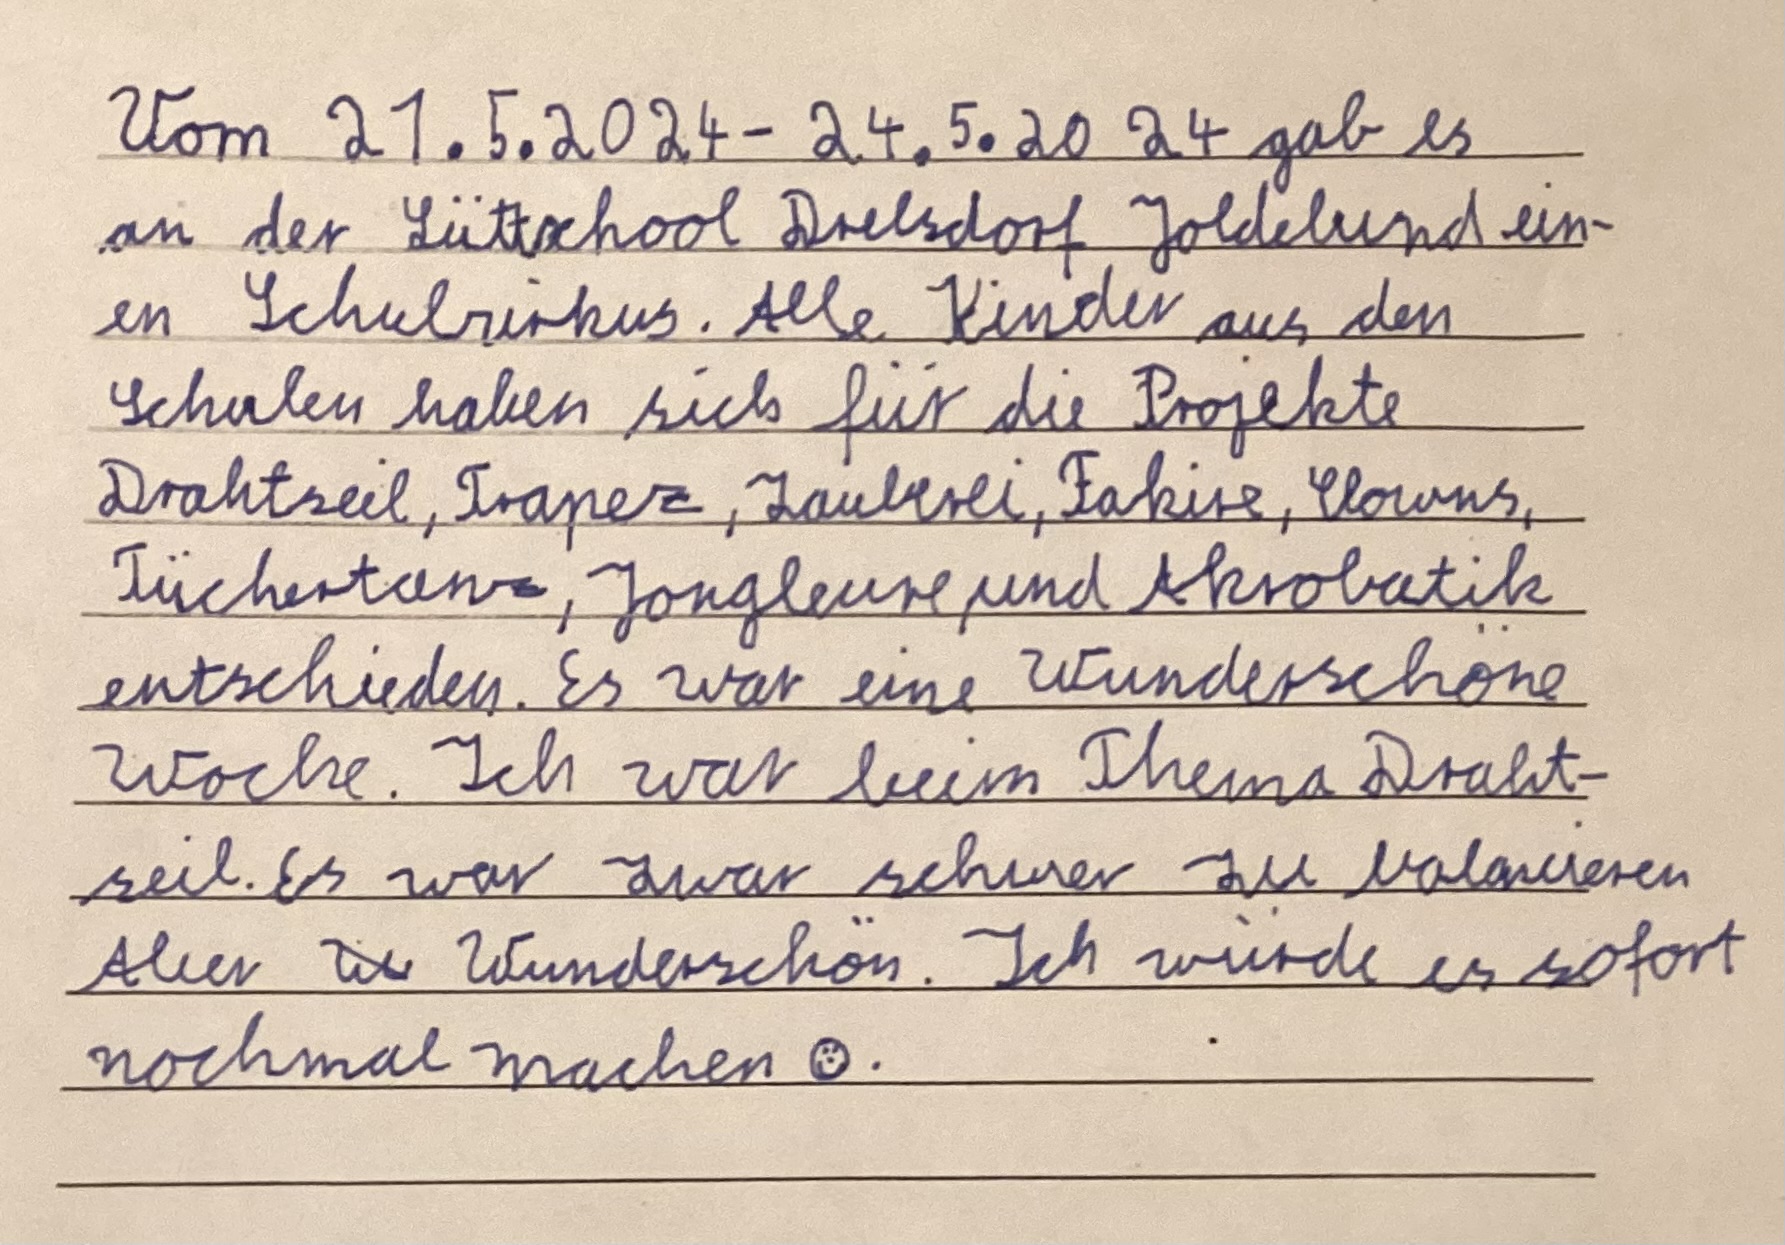 Vom 21.5.2024- 24.5.2024 gab es
an der Lüttschool Drelsdorf Joldelund ein-
en Schulzirkus. Alle Kinder aus den
Schulen haben sich für die Projekte
Drahtseil, Trapez, Zauberei, Fakire, Clowns,
Tüchertanz, Jongleure, und Akrobatik
entschieden. Es war eine Wunderschöne
Woche. Ich war beim Thema Draht-
seil. Es war zwar schwer zu balancieren
Aber Wunderschön. Ich würde es sofort
nochmal machen ☺.